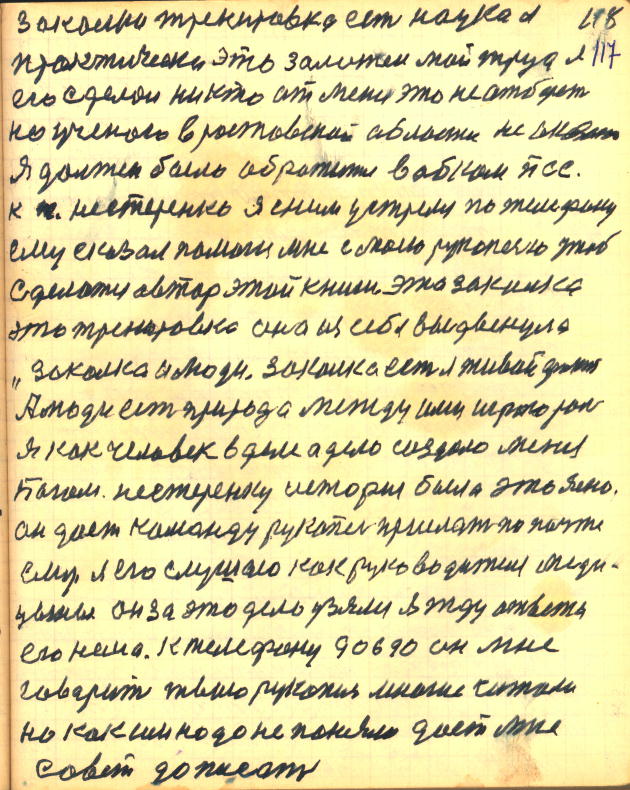 закалка тренировка ест наука а 118
практически это заложен мой труд я 117
его сделал никто от меня это не отберет
но ученого в ростовской области не
Я должен было обратится в обком псс.
к т. нестеренко я с ним устрели по телефону
ему сказал помоги мне с моею рукописю чтоб
сделатся автор этой книги эта закалка
это тренировка она из себя выдвенула
„Закалка и люди. Закалка ест я живой
А люди ест природа между ими играю рол
я как человек в деле а дело создало меня
Богом. нестеренку история была это ясно.
он дает команду рукопис прислат по почте
ему. я его слушаю как руководителя меди-
цыны он за это дело узяли я жду ответа
его нема. К телефону 90690 он мне
говорит твою рукопис многие читали
но как им надо не поняли дает мне
совет дописат